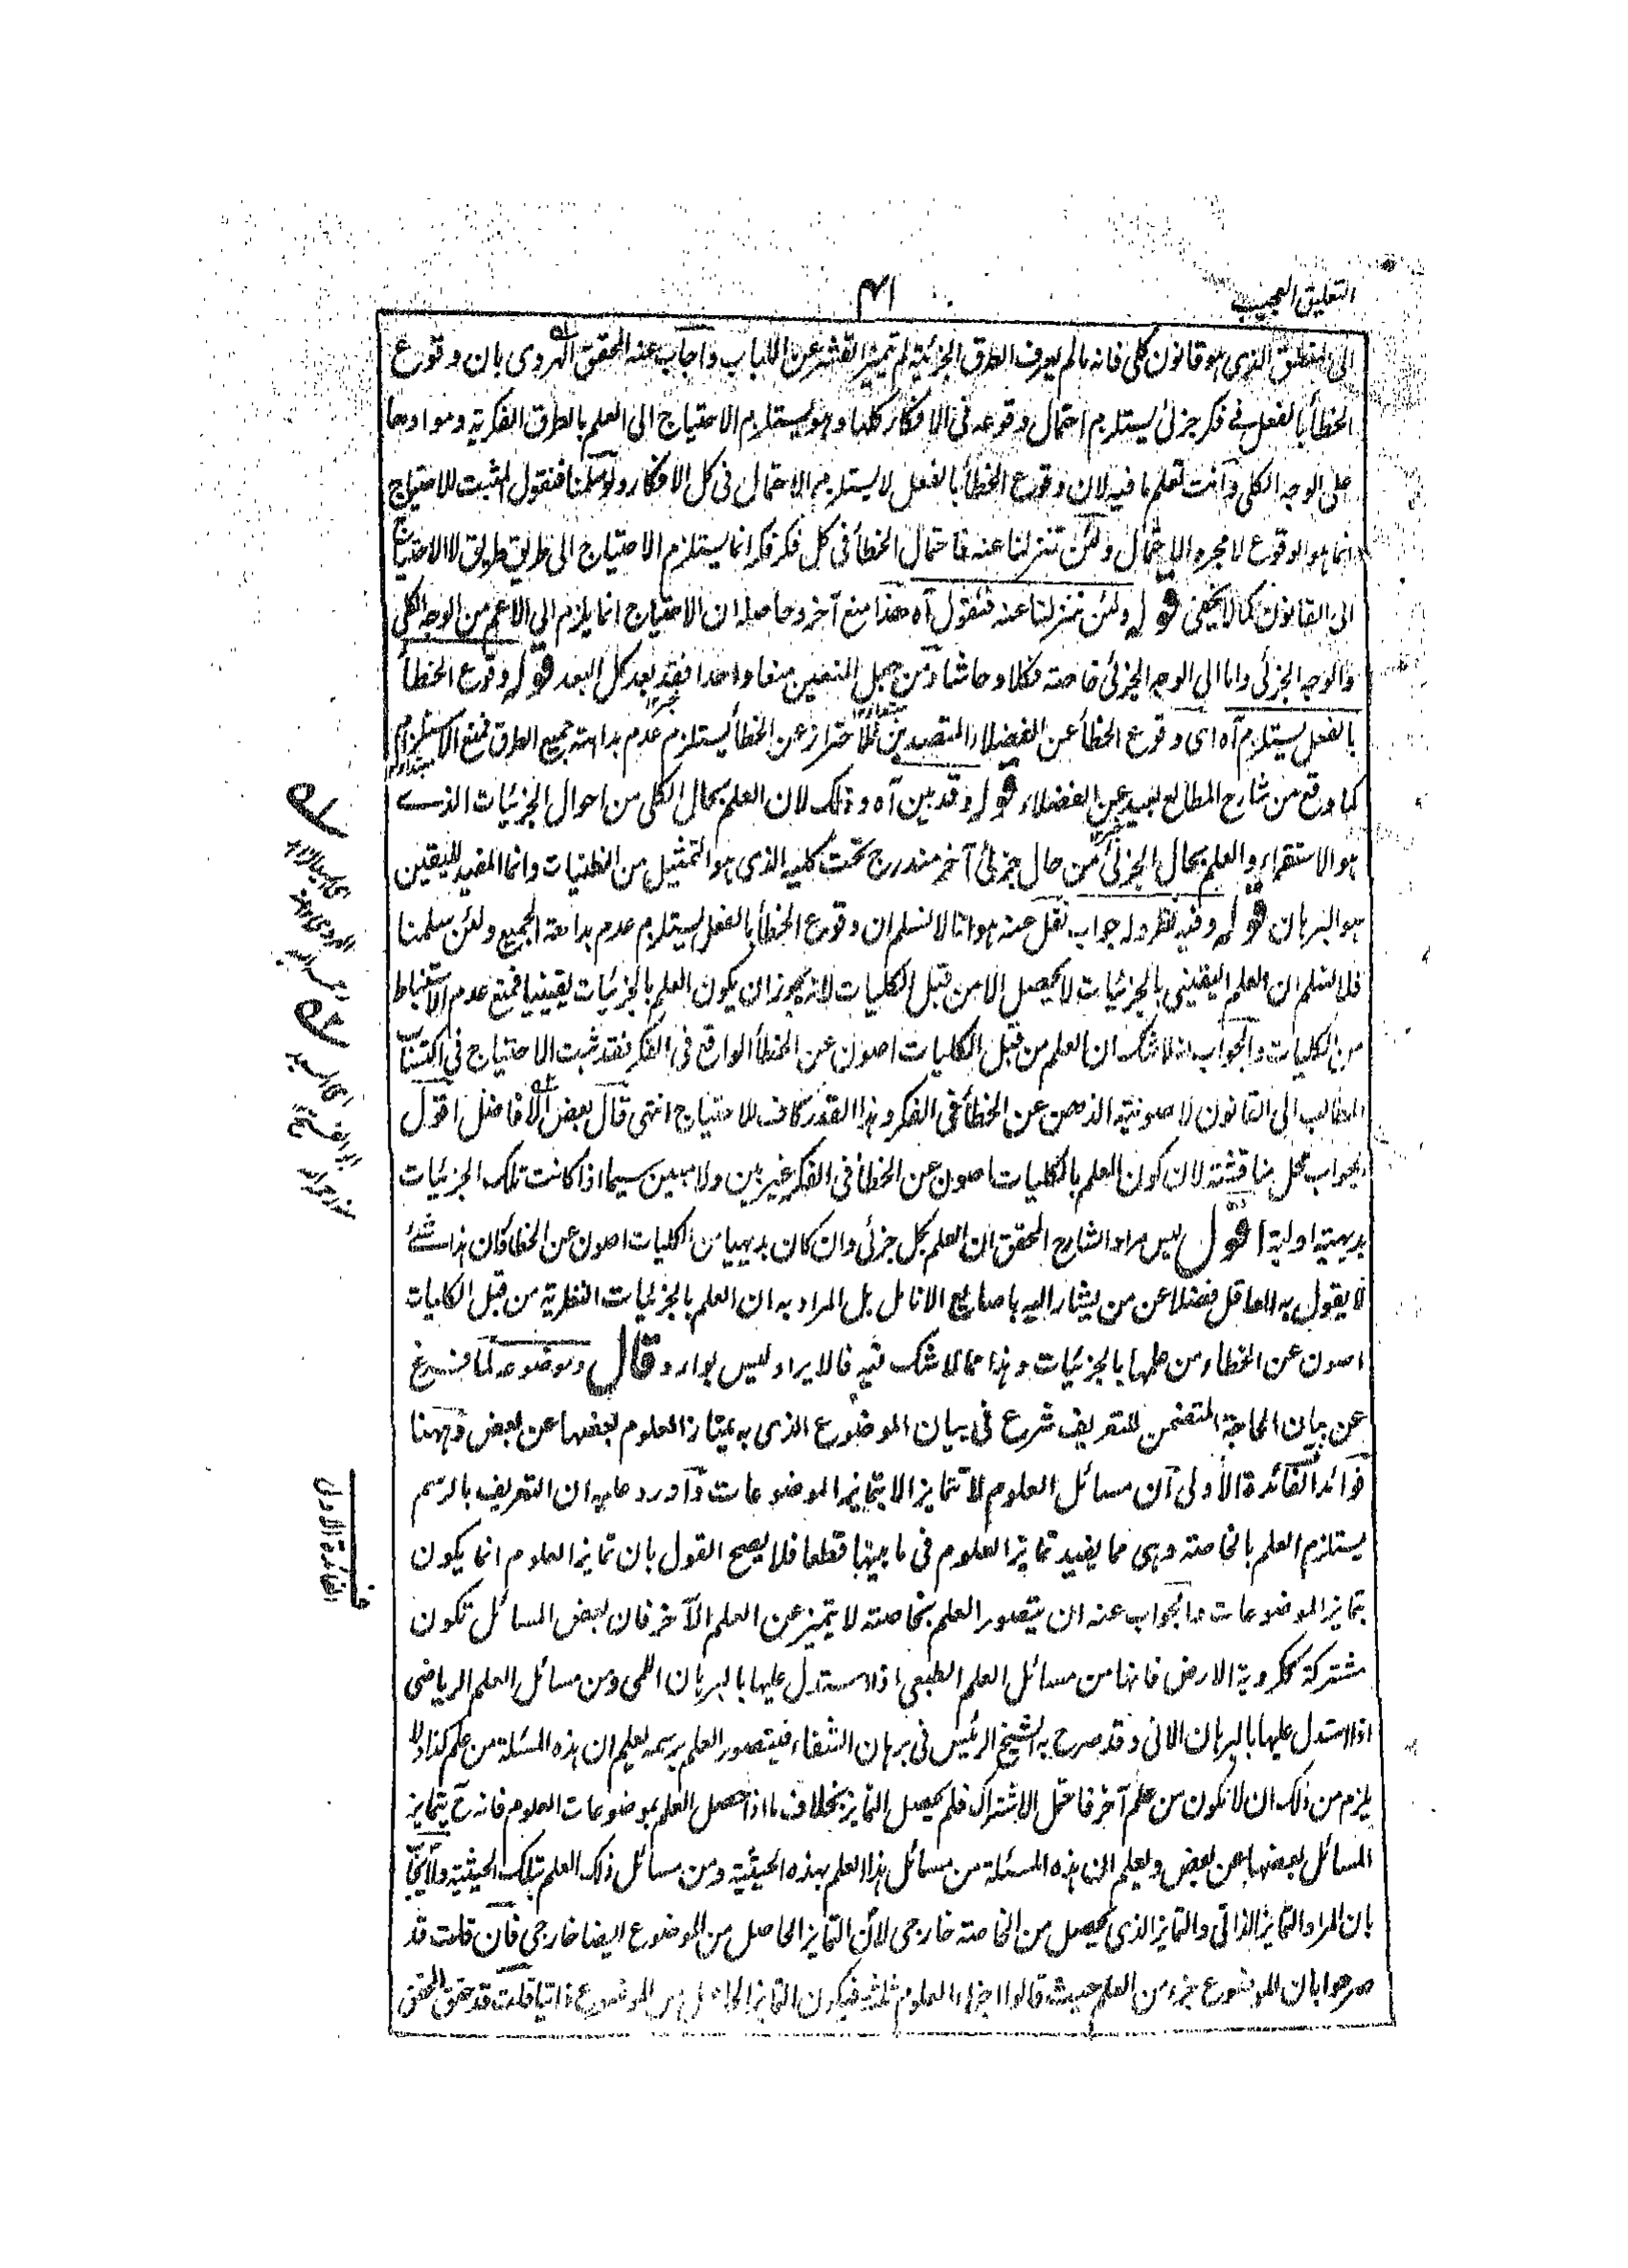 التعليق العجيب
٤١
الى المنطق الذى هو قانون كلى فانه مالم يعرف الطرق الجزئية لم يتميز القشر عن اللباب واجاب عنه المحقق الهروى بان وقوع
الخطأ بالفعل فى فكر جزئى يستلزم احتمال وقوعه فى الافكار كلها وهو يستلزم الاحتياج الى العلم بالطرق الفكرية وموادها
على الوجه الكلى وانت تعلم ما فيه لان وقوع الخطأ بالفعل لا يستلزم الاحتمال فى كل الافكار ولو سلمنا فنقول المثبت للاحتياج
انما هو الوقوع لا مجرد الاحتمال ولئن تنزلنا عنه فاحتمال الخطأ فى كل فكر فكر انما يستلزم الاحتياج الى طريق طريق لا الاحتياج
الى القانون كما لا يخفى قوله ولئن تنزلنا عنه فنقول آه هذا منع آخر وحاصله ان الاحتياج انما يلزم الى الاعم من الوجه الكلى
والوجه الجزئى واما الى الوجه الجزئى خاصة فكلا وحاشا ومن جعل المنعين منعا واحدا فقد بعد كل البعد قوله وقوع الخطأ
بالفعل يستلزم آه اى وقوع الخطأ عن الفضلاء المتصدين للاحتراز عن الخطأ يستلزم عدم بداهة جميع الطرق فمنع الاستلزام
كما وقع من شارح المطالع بعيد عن الفضلاء قوله وقد بين آه وذلك لان العلم بحال الكلى من احوال الجزئيات الذى
هو الاستقراء والعلم بحال الجزئى من حال جزئى آخر مندرج تحت كليه الذى هو التمثيل من الظنيات وانما المفيد لليقين
هو البرهان قوله وفيه نظر وله جواب نقل عنه هو انا لا نسلم ان وقوع الخطأ بالفعل يستلزم عدم بداهة الجميع ولئن سلمنا
فلا نسلم ان العلم اليقينى بالجزئيات لا يحصل الا من قبل الكليات لانه يجوز ان يكون العلم بالجزئيات يقينيا فمنع عدم الاستنباط
من الكليات والجواب انه لا شك ان العلم من قبل الكليات اصون عن الخطأ الواقع فى الفكر فقد ثبت الاحتياج فى اكتساب
المطالب الى القانون لا صونية الذهن عن الخطأ فى الفكر وهذا القدر كاف للاحتياج انتهى قال بعض الافاضل اقول
الجواب محل مناقشة لان كون العلم بالكليات اصون عن الخطأ فى الفكر غير بين ولا مبين سيما اذا كانت تلك الجزئيات
بديهية اولية اقول ليس مراد الشارح المحقق ان العلم بكل جزئى وان كان بديهيا من الكليات اصون عن الخطأ فان هذا شئ
لا يقول به العاقل فضلا عن من يشار اليه باصابع الانامل بل المراد به ان العلم بالجزئيات النظرية من قبل الكليات
اصون عن الخطاء من علمها بالجزئيات وهذا مما لا شك فيه فالايراد ليس بوارد وقال وموضوعه لما فرغ
عن بيان الحاجة المتضمن للتعريف شرع فى بيان الموضوع الذى به يمتاز العلوم بعضها عن بعض وههنا
فوائد الفائدة الأولى ان مسائل العلوم لا تتمايز الا بتمايز الموضوعات واورد عليه ان التعريف بالرسم
يستلزم العلم بالخاصة وهى مما يفيد تمايز العلوم فى ما بينها قطعا فلا يصح القول بان تمايز العلوم انما يكون
بتمايز الموضوعات والجواب عنه ان بتصور العلم بخاصته لا يتميز عن العلم الآخر فان بعض المسائل تكون
مشتركة ككروية الارض فانها من مسائل العلم الطبعى اذا استدل عليها بالبرهان اللمى ومن مسائل العلم الرياضى
اذا استدل عليها بالبرهان الانى وقد صرح به الشيخ الرئيس فى برهان الشفاء فبتصور العلم برسمه لعلم ان هذه المسئلة من علم كذا ولا
يلزم من ذلك ان لا تكون من علم آخر فاحتمل الاشتراك فلم يحصل التمايز بخلاف ما اذا حصل العلم بموضوعات العلوم فانه ح يتمايز
المسائل بعضها عن بعض ويعلم ان هذه المسئلة من مسائل هذا العلم بهذه الحيثية ومن مسائل ذلك العلم بتلك الحيثية ولا يجاب
بان المراد التمايز الذاتى والتمايز الذى يحصل من الخاصة خارجى لان التمايز الحاصل من الموضوع ايضا خارجى فان قلت قد
صرحوا بان الموضوع جزء من العلم حيث قالوا اجزاء العلوم ثلثة فيكون التمايز الحاصل من الموضوع ذاتيا قلت قد حقق المحقق
الفائدة الاولى